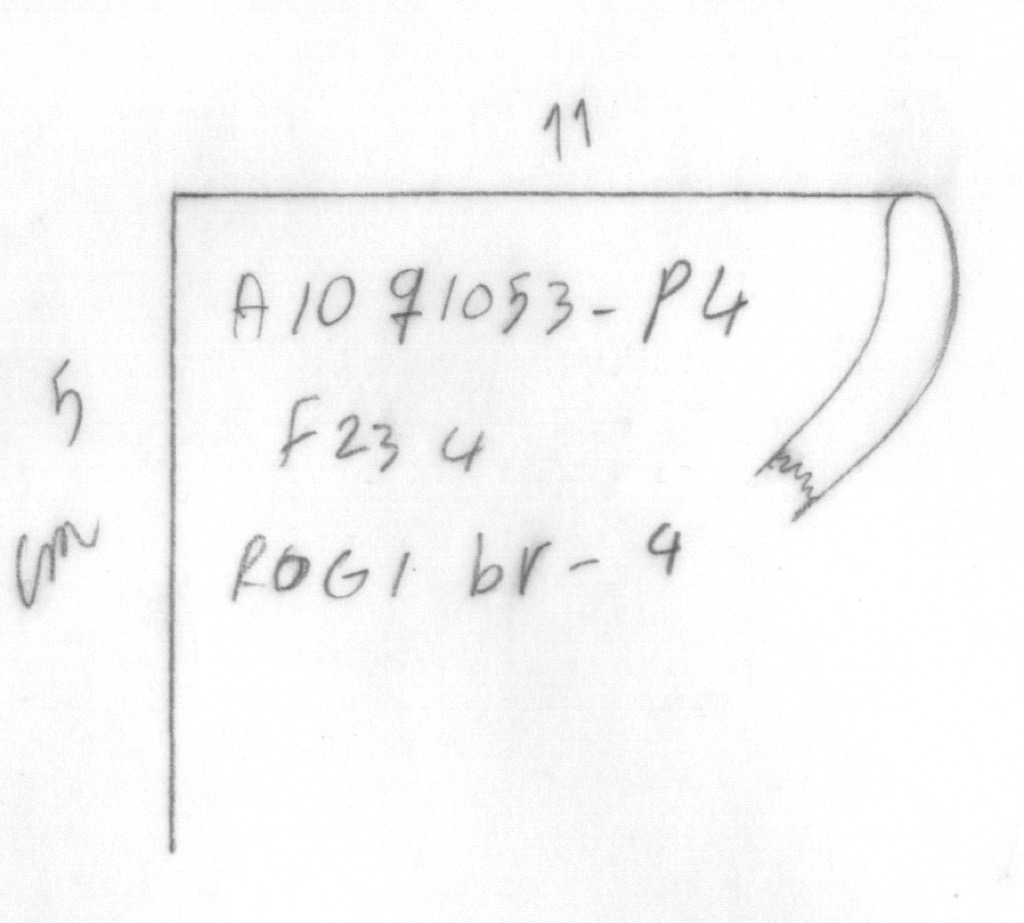 11
A10 91053-P4
5
F23 4
cm
ROG1 br-4